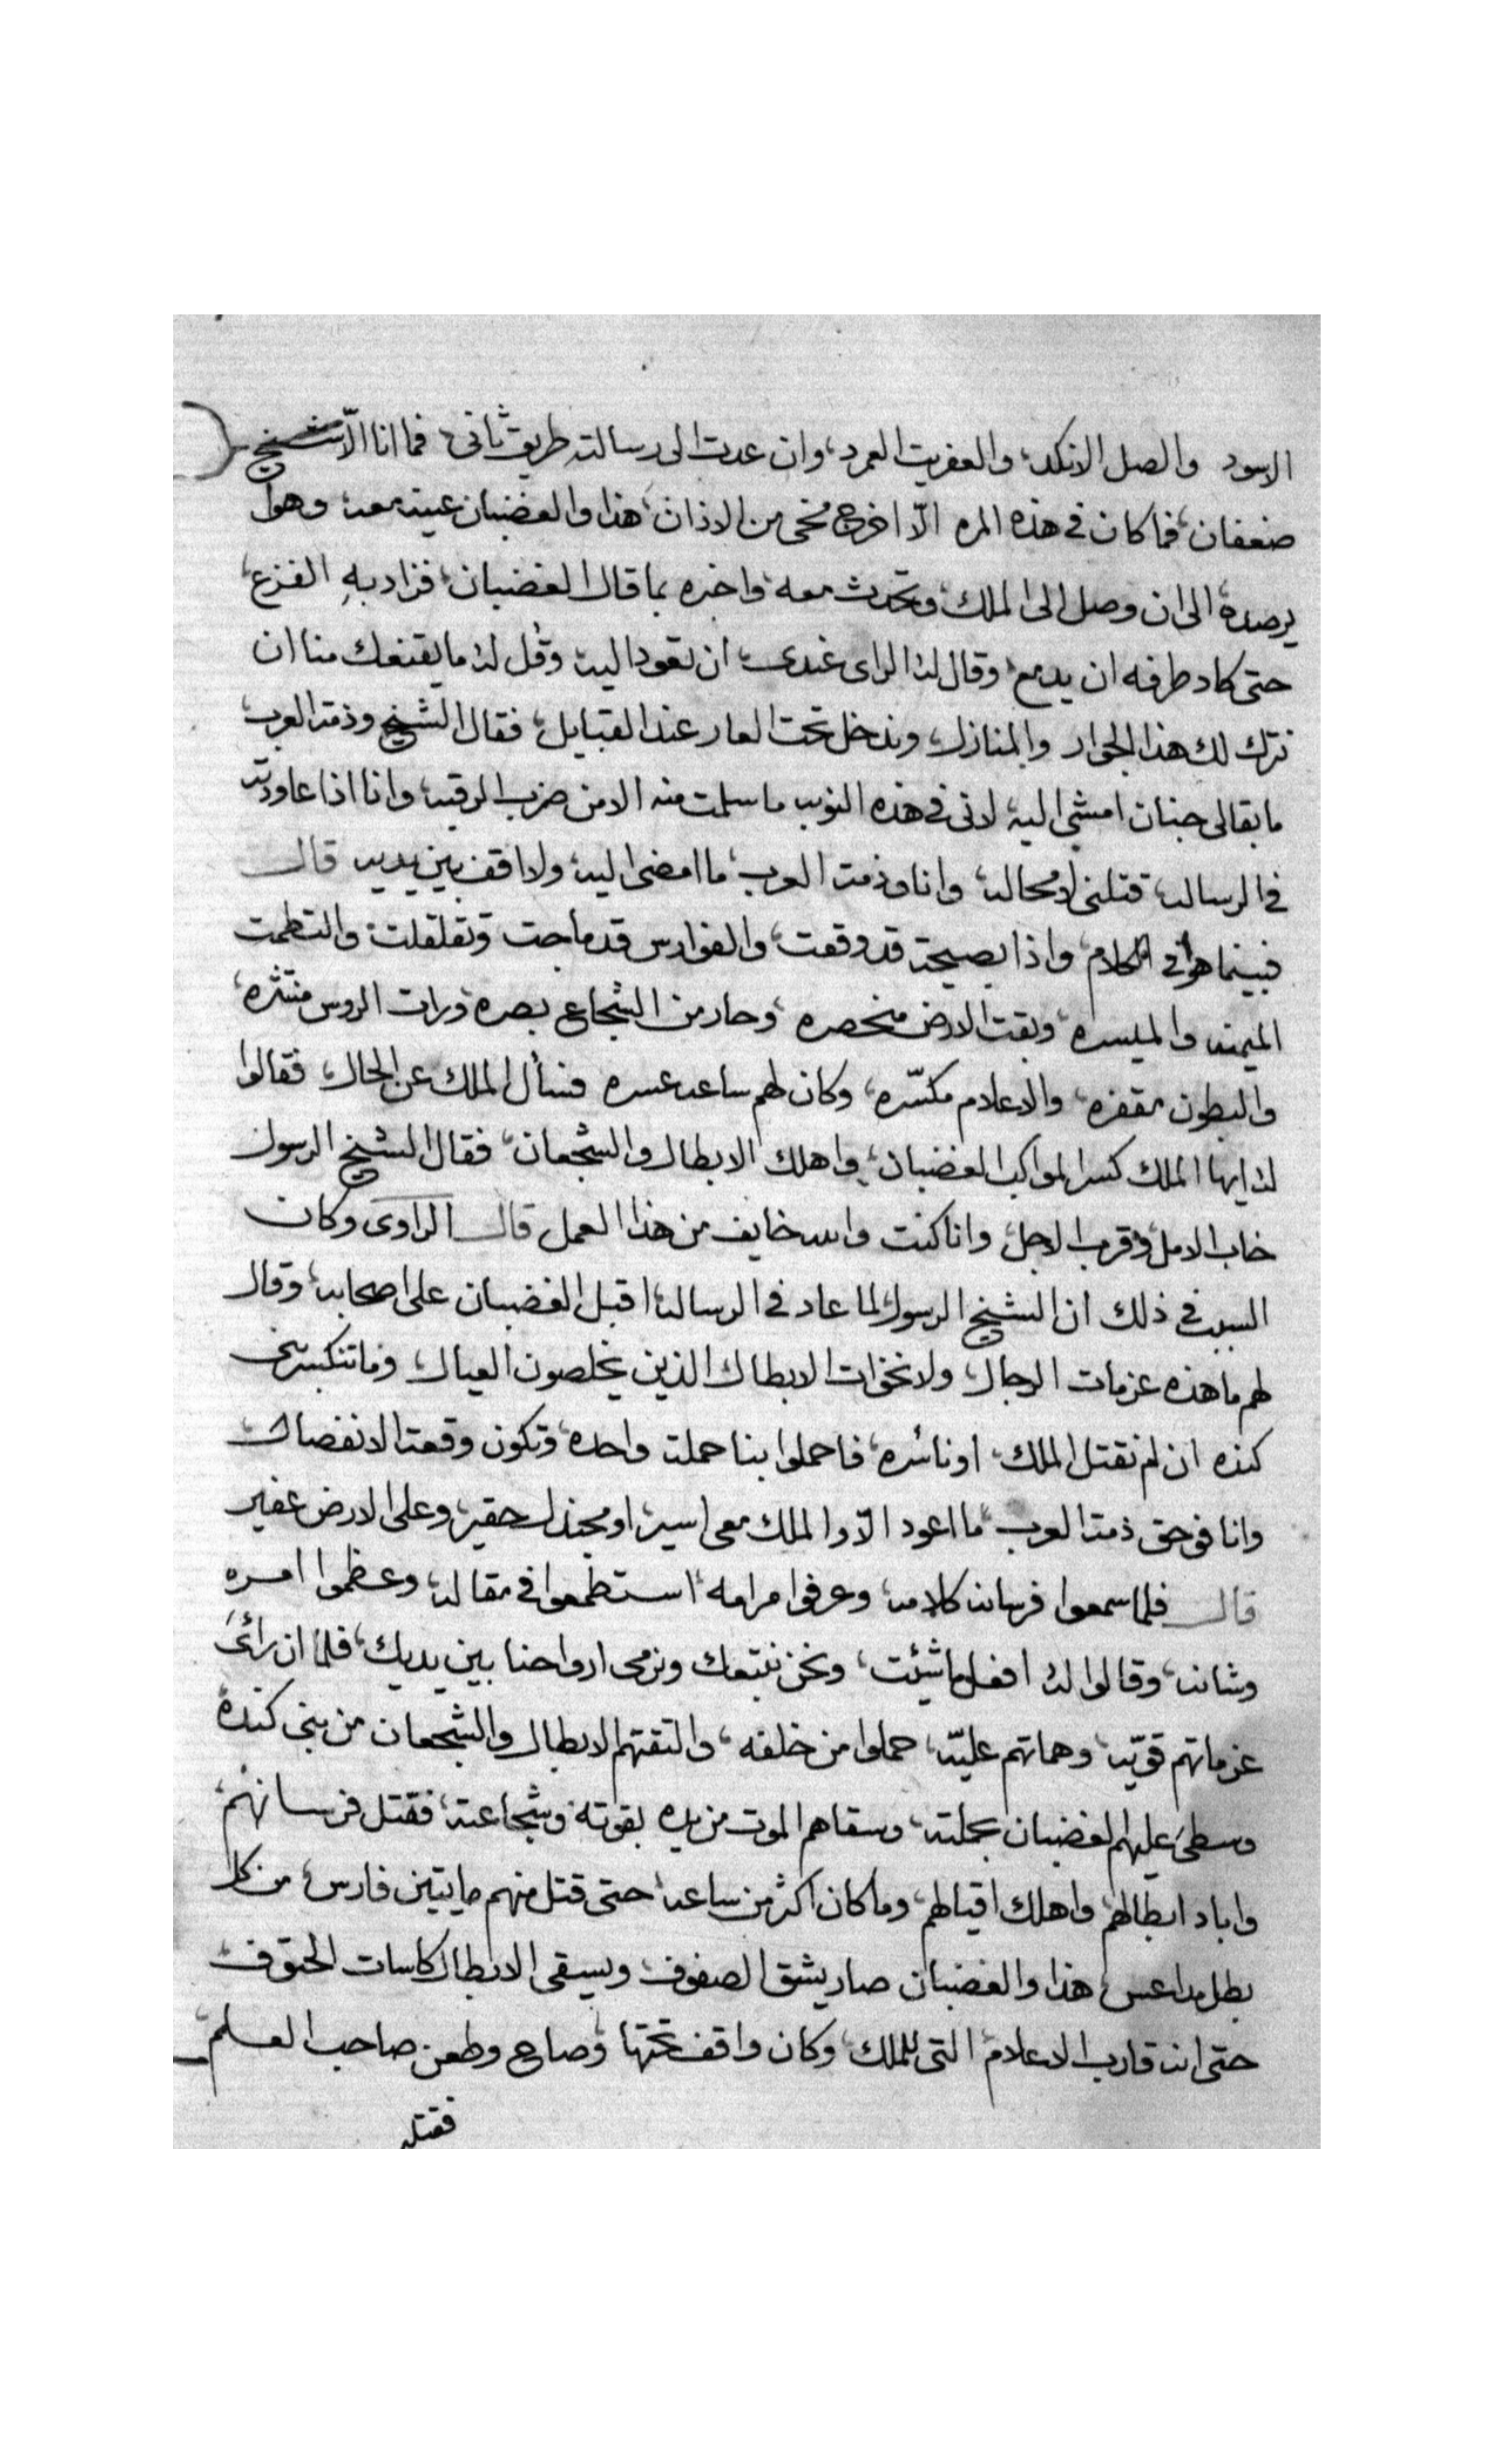 الاسود والصل الانكد، والعفريت العمرد، وان عدت الى رسالته طريق ثاني، فما انا الّا شيخ
ضعفان، فما كان في هذه المره الّا اخرج مخى من الاذان، هذا والغضبان عينه معه وهوا
يرصده، الى ان وصل الى الملك، وتحدث معه، واخبره بما قال الغضبان، فزاد به الفزع،
حتى كاد طرفه ان يدمع، وقال له الراى عندى، ان تعود اليه وقُل له ما يقنعك منا ان
نترك لك هذا الجوار والمنازل، وندخل تحت العار عند القبايل، فقال الشيخ وذمة العرب،
ما بقا لى جنان امشى اليه، لانى في هذه النوبه ما سلمت منه الا من ضرب الرقبه، وانا اذا عاودته
في الرساله، قتلنى لا محاله، وانا وذمة العرب، ما امضى اليه، ولا اقف بين يديه قال
فبينما هوا في الكلام، واذا بصيحة قد وقعت، والفوارس قد ماجت وتقلقلت، والتطمت
الميمنه والميسره، وبقت الارض منحصره، وحار من الشجاع بصره، ورات الروس منتثره،
والبطون مقفره، والاعلام مكسّره، وكان لهم ساعه عسره فسأل الملك عن الحال، فقالوا
له ايها الملك كسر المواكب الغضبان، واهلك الابطال والشجعان، فقال الشيخ الرسول
خاب الامل، وقرب الاجل، وانا كنت والله خايف من هذا العمل قال الراوى وكان
السبب في ذلك ان الشيخ الرسول، لما عاد في الرساله، اقبل الغضبان على اصحابه، وقال
لهم ما هذه عزمات الرجال، ولا نخوات الابطال الذين يخلصون العيال، وما تنكسر بنى
كنده ان لم نقتل الملك، او نأسره، فاحملوا بنا حملة واحده، وتكون وقعة الانفصال،
وانا فوحق ذمة العرب، ما اعود الّا والملك معى اسير، او مجندل حقير، وعلى الارض عفير
قال فلما سمعوا فرسانه كلامه، وعرفوا مرامه، استطمعوا في مقاله، وعظموا امره
وشانه، وقالوا له افعل ما شئت، ونحن نتبعك ونرمى ارواحنا بين يديك، فلما ان رأىَ
عزماتهم قويّه، وهماتهم عليّه، حملوا من خلفه، والتقتهم الابطال والشجعان من بنى كندة
وسطىَ عليهم الغضبان بحملته، وسقاهم الموت من يده بقوته وشجاعته، فقتل فرسانهم،
واباد ابطالهم، واهلك اقيالهم، وما كان اكثر من ساعه، حتى قتل منهم مايتين فارس، من كل
بطل مداعس، هذا والغضبان صار يشق الصفوف، ويسقى الابطال كاسات الحتوف،
حتى انه قارب الاعلام، التى للملك، وكان واقف تحتها، وصاح وطعن صاحب العلم،
فقتله